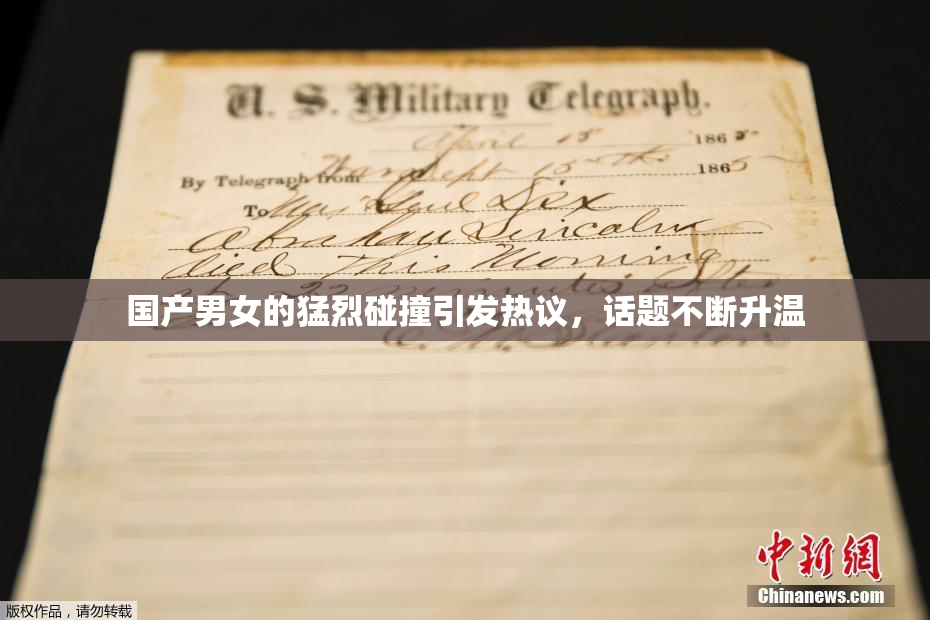 U. S. Military Telegraph.
April 15 1865
By Telegraph from War Dept 15th 1865
To Maj Genl Dix
Abraham Lincoln
died This Morning
at 22 minutes after
国产男女的猛烈碰撞引发热议，话题不断升温
E. M. Stanton
中新網
Chinanews.com
版权作品，请勿转载